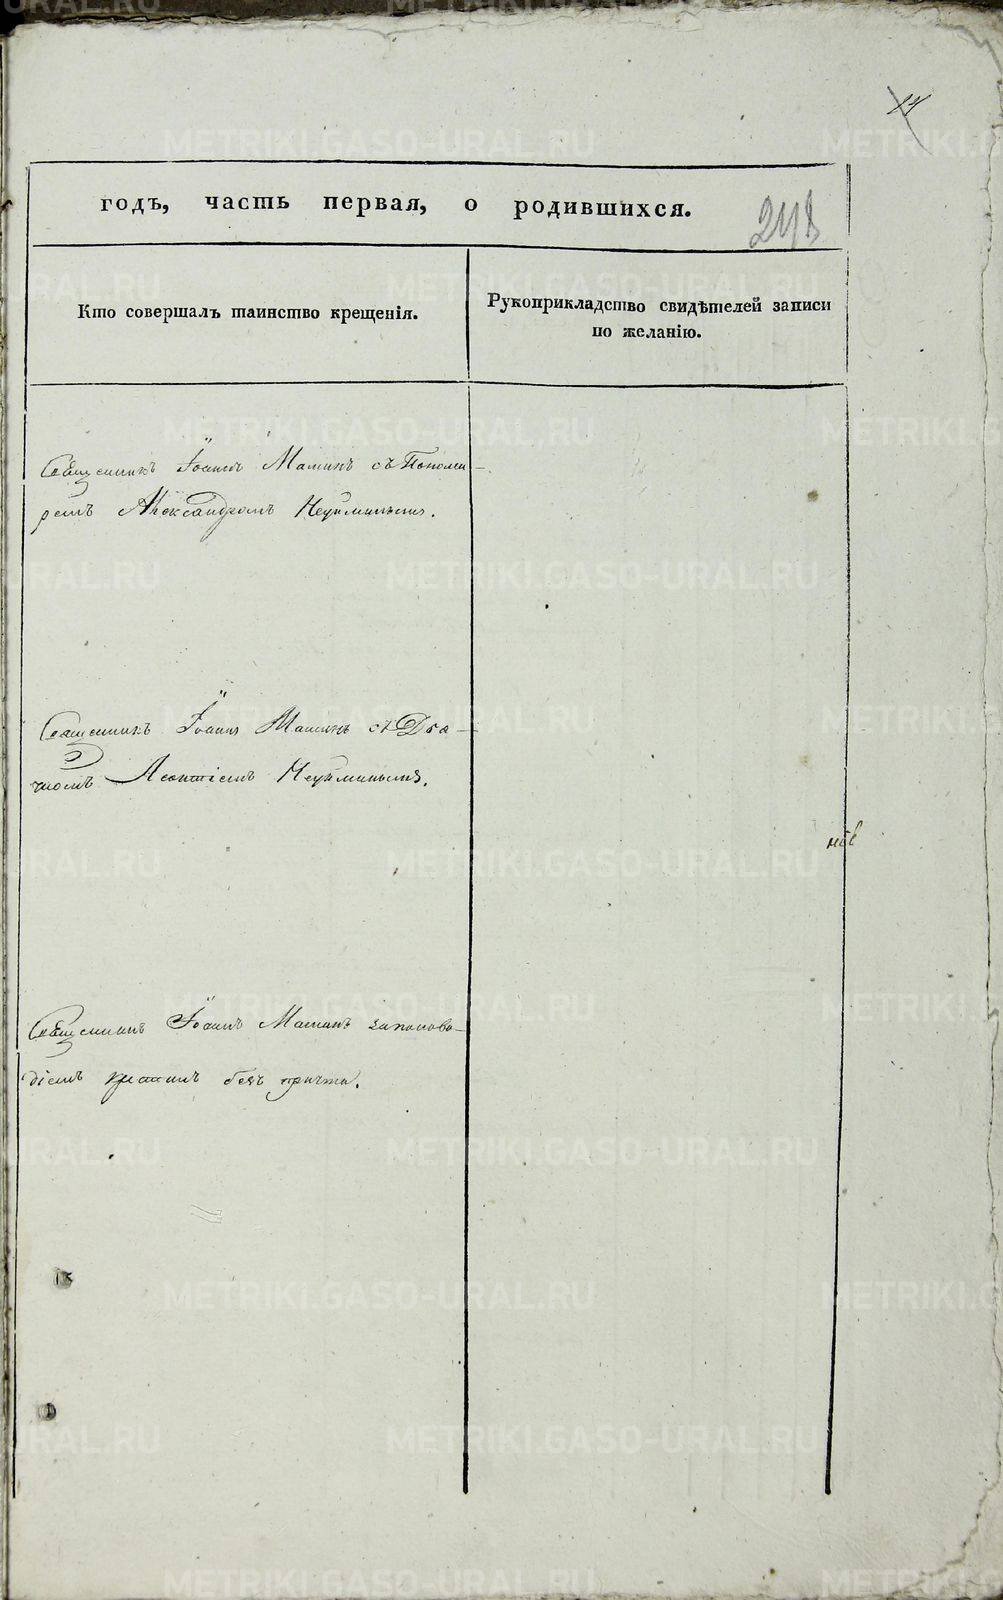 годъ, часть первая, о родившихся.
Кто совершалъ таинство крещенія.
Рукоприкладство свидѣтелей записи
по желанію.
Священникъ Іоаннъ Маминъ съ Понома-
ремъ Александромъ Неуйминымъ.
Священникъ Іоаннъ Маминъ съ Дья-
чкомъ Леонтіемъ Неуйминымъ.
Священникъ Іоаннъ Маминъ
безъ причта.
METRIKI.GASO-URAL.RU